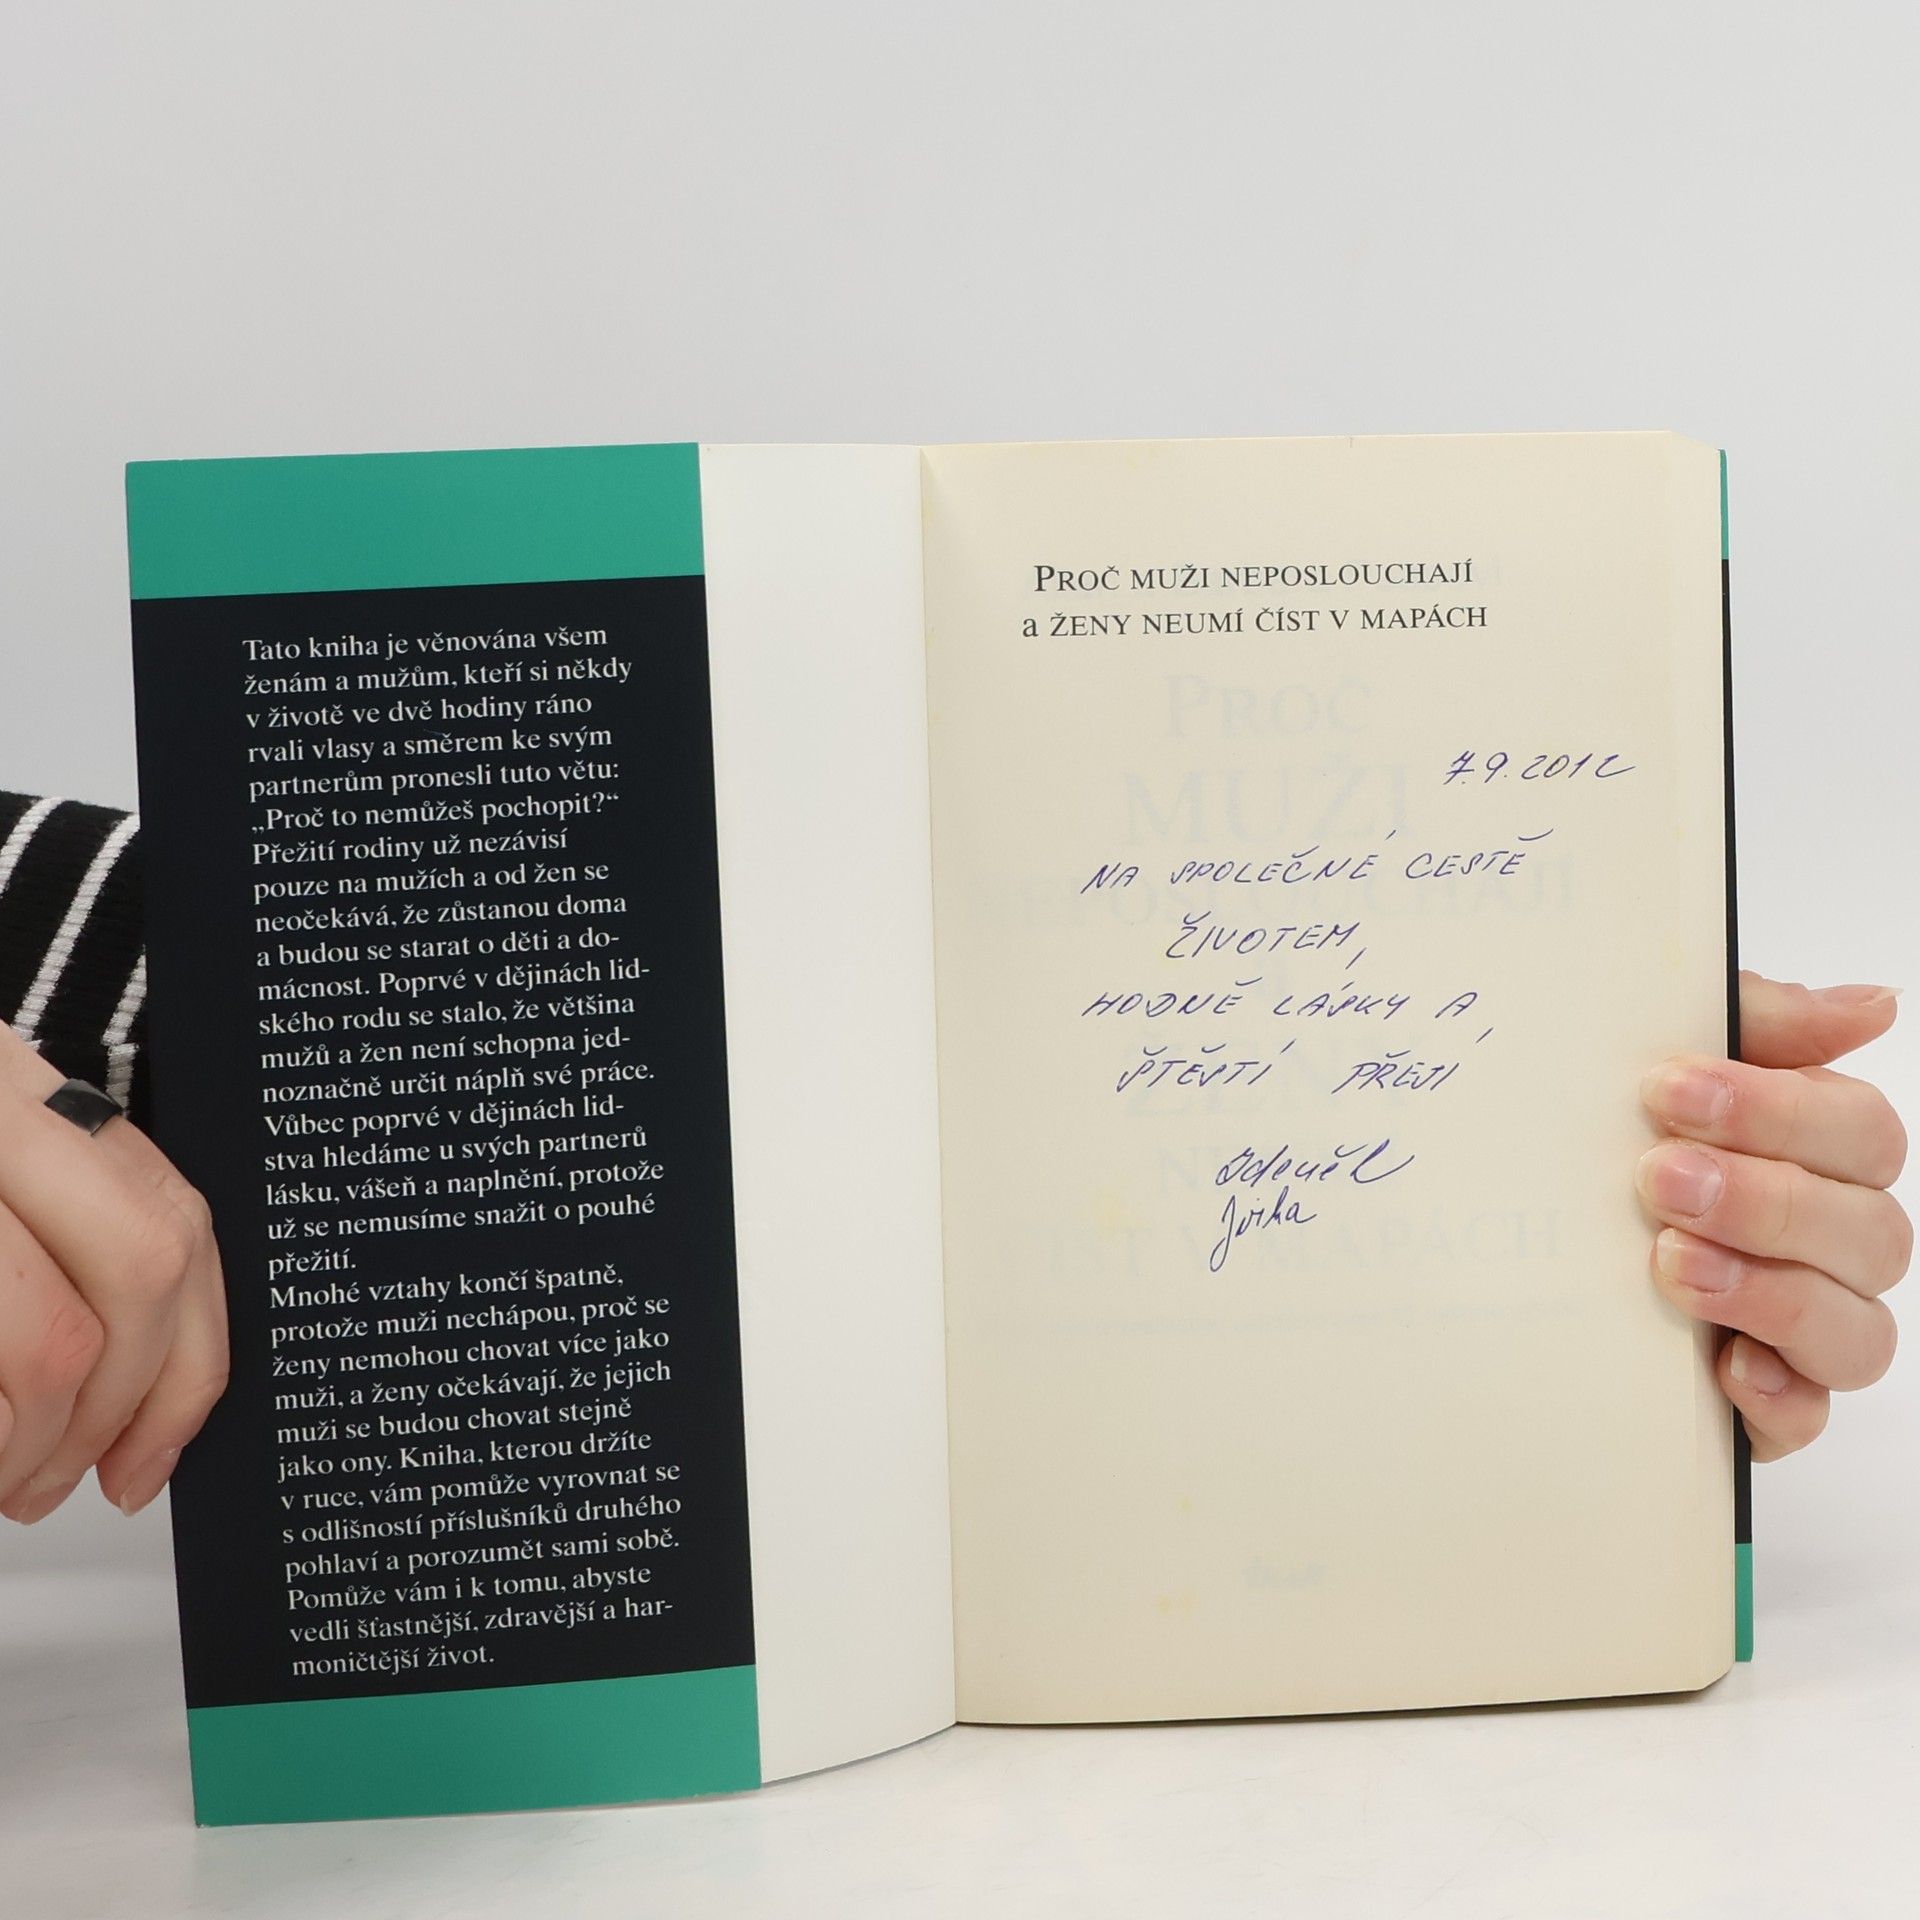 Tato kniha je věnována všem
ženám a mužům, kteří si někdy
v životě ve dvě hodiny ráno
rvali vlasy a směrem ke svým
partnerům pronesli tuto větu:
„Proč to nemůžeš pochopit?“
Přežití rodiny už nezávisí
pouze na mužích a od žen se
neočekává, že zůstanou doma
a budou se starat o děti a do-
mácnost. Poprvé v dějinách lid-
ského rodu se stalo, že většina
mužů a žen není schopna jed-
noznačně určit náplň své práce.
Vůbec poprvé v dějinách lid-
stva hledáme u svých partnerů
lásku, vášeň a naplnění, protože
už se nemusíme snažit o pouhé
přežití.
Mnohé vztahy končí špatně,
protože muži nechápou, proč se
ženy nemohou chovat více jako
muži, a ženy očekávají, že jejich
muži se budou chovat stejně
jako ony. Kniha, kterou držíte
v ruce, vám pomůže vyrovnat se
s odlišností příslušníků druhého
pohlaví a porozumět sami sobě.
Pomůže vám i k tomu, abyste
vedli šťastnější, zdravější a har-
moničtější život.
PROČ MUŽI NEPOSLOUCHAJÍ
a ŽENY NEUMÍ ČÍST V MAPÁCH
7.9.2012
NA SPOLEČNÉ CESTĚ
ŽIVOTEM,
HODNĚ LÁSKY A
ŠTĚSTÍ PŘEJÍ
Zdeněk
Jirka